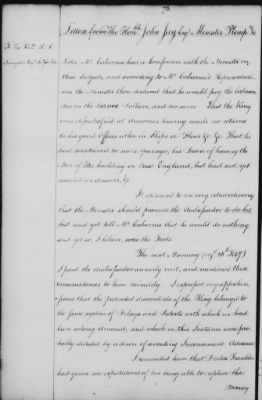 78.
Letters from The Honble John Jay Esqr Minister Plenipo &c
After Mr Cabarrus had a Conference with the Minister on
this subject, and according to Mr Cabarrus's Representation
was the Minister then declared that he would pay the
dollars, and no more. That the King
was dissatisfied at America's having made no returns
to his good Offices either in Ships or Flour &c &c That he
had mentioned to me a year ago, his desire of having the
Men of War building in New England, but had not yet
received an answer, &c
It appeared to me very extraordinary
that the Minister should promise the Ambassador to do his
best and yet tell Mr Cabarrus that he would do nothing
and yet so, I believe, was the Fact.
The next Morning (of 16th)
I paid the Ambassador another visit, and mentioned these
circumstances to him minutely. I expressed my apprehen-
sions that the pretended discontents of the King belonged to
the same system of Delays and Pretexts with which we had
been so long amused; and which in this Instance were pro-
bably dictated by a desire of avoiding Inconvenient Advances
I reminded him that Doctor Franklin
had given me expectations of his being able to replace the
money